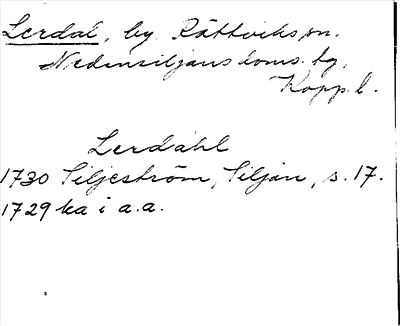 Lerdal, by, Rättviks sn.
Nedansiljans doms. tg,
Kopp. l.
Lerdahl
1730 Siljeström, Siljan, s. 17.
1729 ka i a.a.